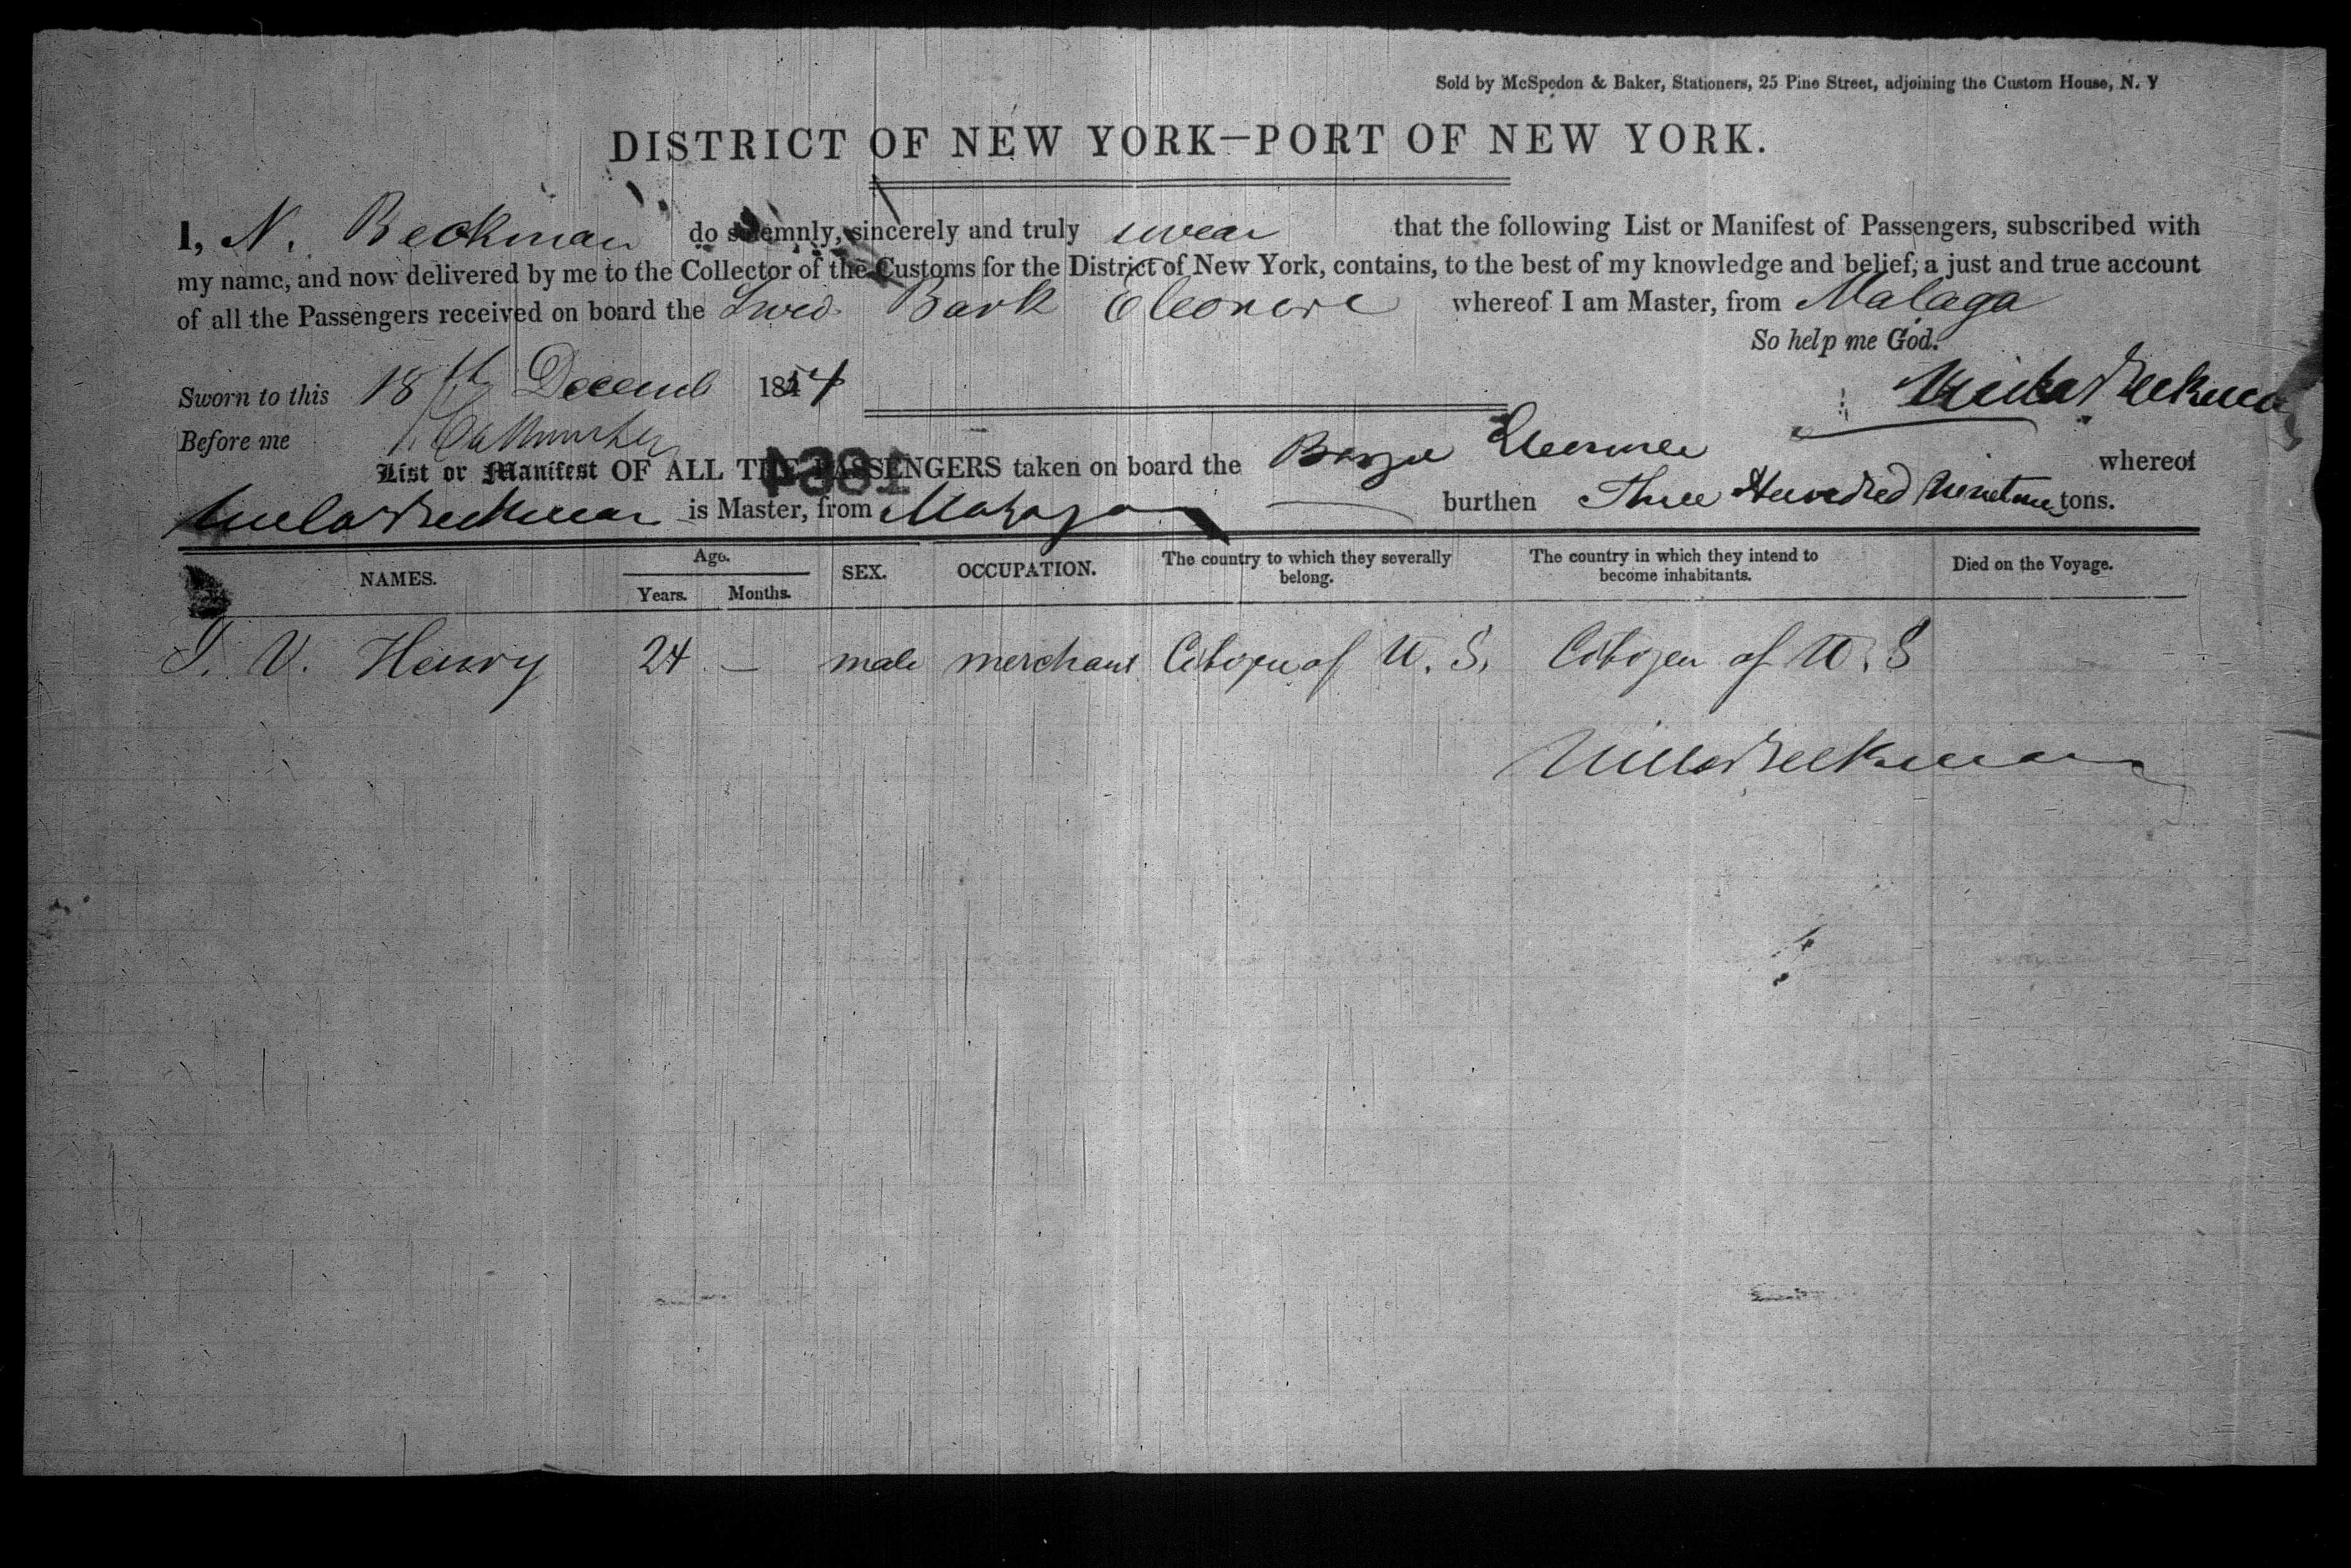 Sold by McSpedon & Baker, Stationers, 25 Pine Street, adjoining the Custom House, N. Y
DISTRICT OF NEW YORK—PORT OF NEW YORK.
I, N. Beckman do solemnly, sincerely and truly swear that the following List or Manifest of Passengers, subscribed with
my name, and now delivered by me to the Collector of the Customs for the District of New York, contains, to the best of my knowledge and belief, a just and true account
of all the Passengers received on board the Swed. Bark Eleonore whereof I am Master, from Malaga
So help me God.
Sworn to this 18th Decemb 1854
Beckman
Before me
List or Manifest OF ALL THE PASSENGERS taken on board the whereof
Beckman is Master, from Malaga burthen Three Hundred tons.
NAMES. Age. Years. Months. SEX. OCCUPATION. The country to which they severally belong. The country in which they intend to become inhabitants. Died on the Voyage.
V. Henry 24 – male merchant Citizen of U. S. Citizen of U. S
Beckman